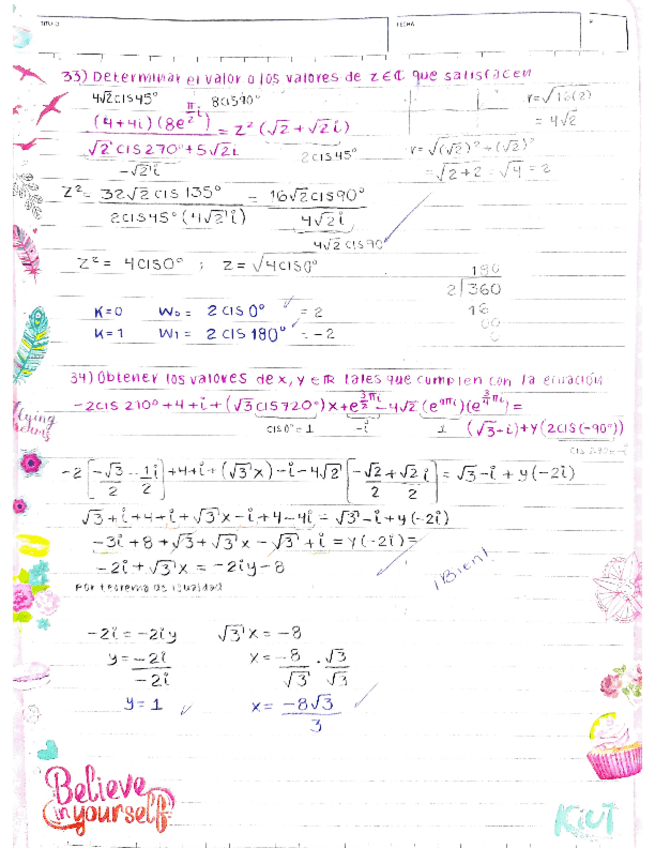 TITULO FECHA N°
33) Determinar el valor o los valores de z∈ℂ que satisfacen
4√2cis45° 8cis90° r=√16(2)
(4+4i)(8e^(π/2 i)) / (√2 cis270°+5√2i) = z²(√2+√2i) = 4√2
-√2i 2cis45° r=√(√2)²+(√2)²
=√2+2 = √4 = 2
z²= 32√2cis135° / 2cis45°(4√2i) = 16√2cis90° / 4√2i
4√2cis90
z²= 4cis0° ; z=√4cis0°
180
2)360
16
00
0
K=0 W₀= 2cis0° = 2
K=1 W₁= 2cis180° = -2
34) Obtener los valores de x, y ∈ℝ tales que cumplen con la ecuación
-2cis210°+4+i+(√3cis720°)x+e^(3/2 πi)-4√2(e^(4πi))(e^(3/4 πi))=
cis0°=1 -i 1 (√3-i)+y(2cis(-90°))
-2[-√3/2 - 1/2 i]+4+i+(√3x)-i-4√2[-√2/2+√2/2 i]=√3-i+y(-2i)
√3+i+4+i+√3x-i+4-4i=√3-i+y(-2i)
-3i+8+√3+√3x-√3+i=y(-2i)=
-2i+√3x=-2iy-8
¡Bien!
Por teorema de igualdad
-2i=-2iy √3x=-8
y=-2i/-2i x=-8/√3 · √3/√3
y=1 x=-8√3/3
flying
dreams
Believe
in yourself
KiUT